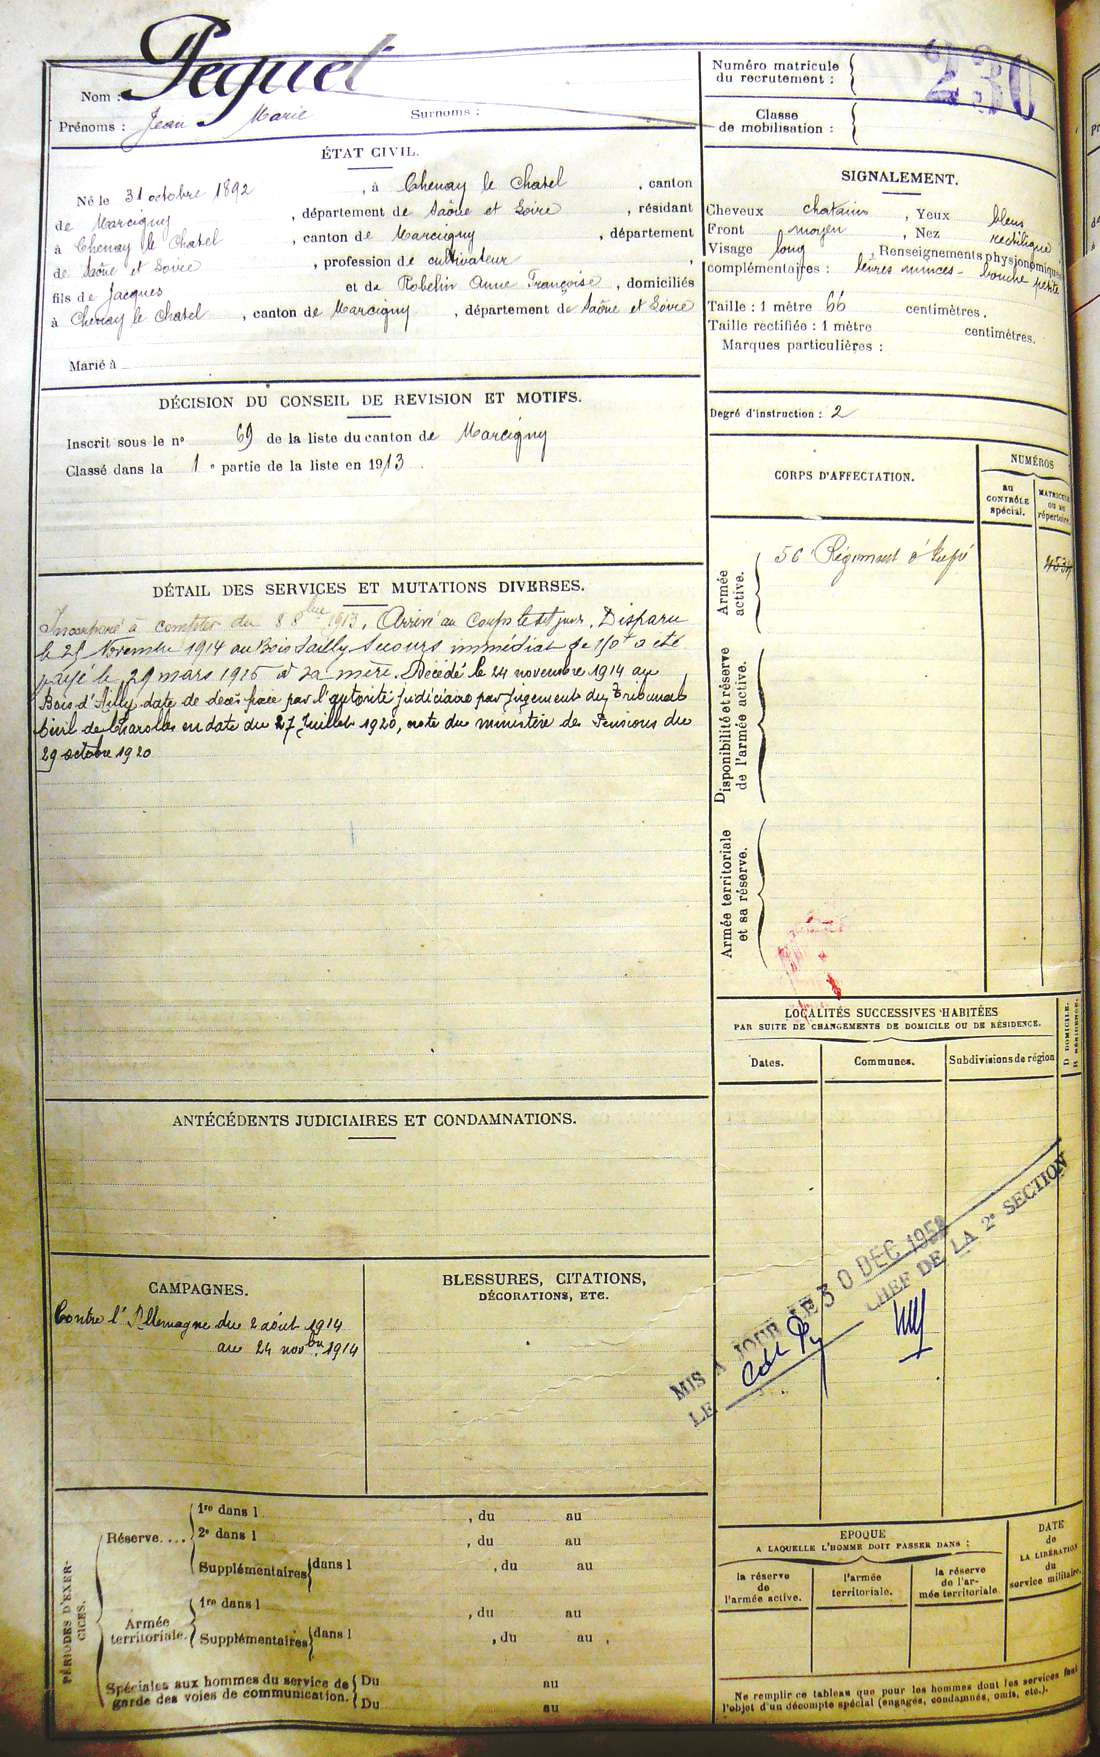 Nom : Pequet
Prénoms : Jean Marie Surnoms :
Numéro matricule
du recrutement : 230
Classe
de mobilisation :
ÉTAT CIVIL.
Né le 31 octobre 1892, à Chenay le Chatel, canton
de Marcigny, département de Saône et Loire, résidant
à Chenay le Chatel, canton de Marcigny, département
de Saône et Loire, profession de cultivateur,
fils de Jacques et de Robelin Anne Françoise, domiciliés
à Chenay le Chatel, canton de Marcigny, département de Saône et Loire
Marié à
SIGNALEMENT.
Cheveux chatains, Yeux bleus
Front moyen, Nez rectiligne
Visage long, Renseignements physionomiques
complémentaires : lèvres minces - bouche petite
Taille : 1 mètre 66 centimètres.
Taille rectifiée : 1 mètre centimètres.
Marques particulières :
Degré d'instruction : 2
DÉCISION DU CONSEIL DE REVISION ET MOTIFS.
Inscrit sous le nº 69 de la liste du canton de Marcigny
Classé dans la 1e partie de la liste en 1913.
CORPS D'AFFECTATION.
NUMÉROS
au
CONTRÔLE
spécial.
MATRICULE
OU AU
répertoire.
Armée
active.
56e Régiment d'Infie
4534
Disponibilité et réserve
de l'armée active.
Armée territoriale
et sa réserve.
DÉTAIL DES SERVICES ET MUTATIONS DIVERSES.
Incorporé à compter du 8 8bre 1913. Arrivé au Corps le dit jour. Disparu
le 25 Novembre 1914 au Bois d'ailly Secours immédiat de 150f a été
payé le 29 mars 1916 à sa mère. Décédé le 24 novembre 1914 au
Bois d'Ailly date de décès fixée par l'autorité Judiciaire par Jugement du Tribunal
Civil de Charolles en date du 27 Juillet 1920, note du ministère des Pensions du
29 octobre 1920
LOCALITÉS SUCCESSIVES HABITÉES
PAR SUITE DE CHANGEMENTS DE DOMICILE OU DE RÉSIDENCE.
Dates. Communes. Subdivisions de région
D DOMICILE.
R RÉSIDENCE.
ANTÉCÉDENTS JUDICIAIRES ET CONDAMNATIONS.
CAMPAGNES.
Contre l'Allemagne du 2 août 1914
au 24 novbre 1914
BLESSURES, CITATIONS,
DÉCORATIONS, ETC.
MIS A JOUR LE 30 DEC 1952
LE CHEF DE LA 2e SECTION
PÉRIODES D'EXER-
CICES.
Réserve....
1re dans l , du au
2e dans l , du au
Supplémentaires dans l , du au
Armée
territoriale.
1re dans l , du au
Supplémentaires dans l , du au ,
Spéciales aux hommes du service de
garde des voies de communication.
Du au
Du au
EPOQUE
A LAQUELLE L'HOMME DOIT PASSER DANS :
la réserve
de
l'armée active.
l'armée
territoriale.
la réserve
de l'ar-
mée territoriale
DATE
de
LA LIBÉRATION
du
service militaire.
Ne remplir ce tableau que pour les hommes dont les services font
l'objet d'un décompte spécial (engagés, condamnés, omis, etc.).